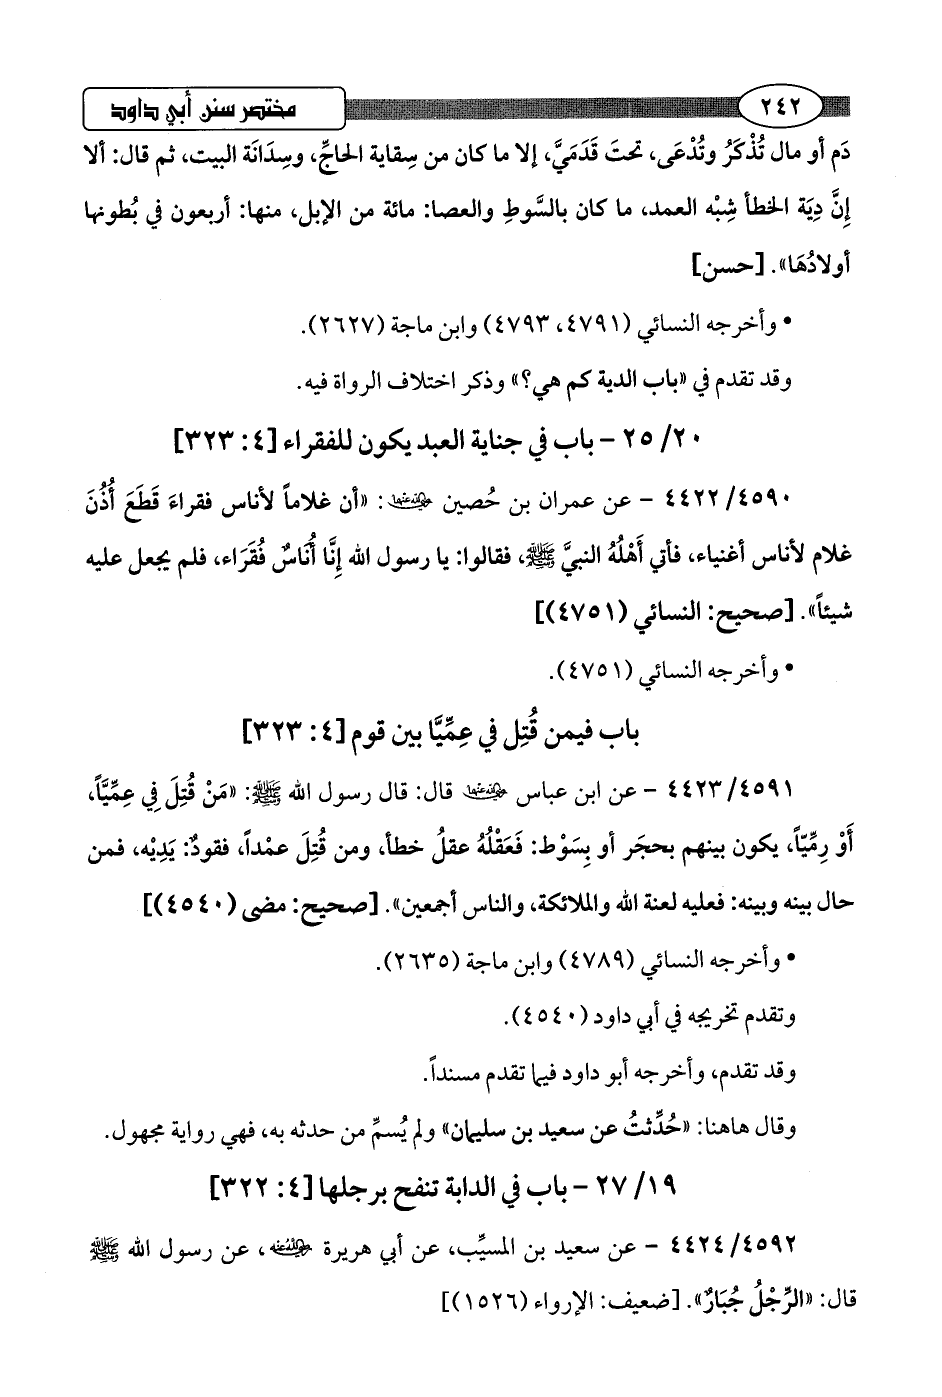 ٢٤٢
مختصر سنن أبي داود
دَم أو مال تُذْكَرُ وتُدْعَى، تحتَ قَدَمَيَّ، إلا ما كان من سِقاية الحاجِّ، وسِدَانَة البيت، ثم قال: ألا
إنَّ دِيَة الخطأ شِبْه العمد، ما كان بالسَّوطِ والعصا: مائة من الإبل، منها: أربعون في بُطونها
أولادُهَا». [حسن]
• وأخرجه النسائي (٤٧٩١، ٤٧٩٣) وابن ماجة (٢٦٢٧).
وقد تقدم في «باب الدية كم هي؟» وذكر اختلاف الرواة فيه.
٢٥/٢٠ - باب في جناية العبد يكون للفقراء [٤: ٣٢٣]
٤٤٢٢/٤٥٩٠ - عن عمران بن حُصين رضي الله عنهما: «أن غلاماً لأناس فقراءَ قَطَعَ أُذُنَ
غلام لأناس أغنياء، فأتي أَهْلُهُ النبيَّ ﷺ، فقالوا: يا رسول الله إنَّا أُنَاسٌ فُقَرَاء، فلم يجعل عليه
شيئاً». [صحيح: النسائي (٤٧٥١)]
• وأخرجه النسائي (٤٧٥١).
باب فيمن قُتِل في عِمِّيَّا بين قوم [٤: ٣٢٣]
٤٤٢٣/٤٥٩١ - عن ابن عباس رضي الله عنهما قال: قال رسول الله ﷺ: «مَنْ قُتِلَ فِي عِمِّيَّاً،
أَوْ رِمِّيّاً، يكون بينهم بحجَر أو بِسَوْط: فَعَقْلُهُ عقلُ خطأ، ومن قُتِلَ عمْداً، فقودٌ: يَدِيْه، فمن
حال بينه وبينه: فعليه لعنة الله والملائكة، والناس أجمعين». [صحيح: مضى (٤٥٤٠)]
• وأخرجه النسائي (٤٧٨٩) وابن ماجة (٢٦٣٥).
وتقدم تخريجه في أبي داود (٤٥٤٠).
وقد تقدم، وأخرجه أبو داود فيما تقدم مسنداً.
وقال هاهنا: «حُدِّثتُ عن سعيد بن سليمان» ولم يُسمِّ من حدثه به، فهي رواية مجهول.
٢٧/١٩ - باب في الدابة تنفح برجلها [٤: ٣٢٢]
٤٤٢٤/٤٥٩٢ - عن سعيد بن المسيِّب، عن أبي هريرة رضي الله عنه، عن رسول الله ﷺ
قال: «الرِّجْلُ جُبَارٌ». [ضعيف: الإرواء (١٥٢٦)]